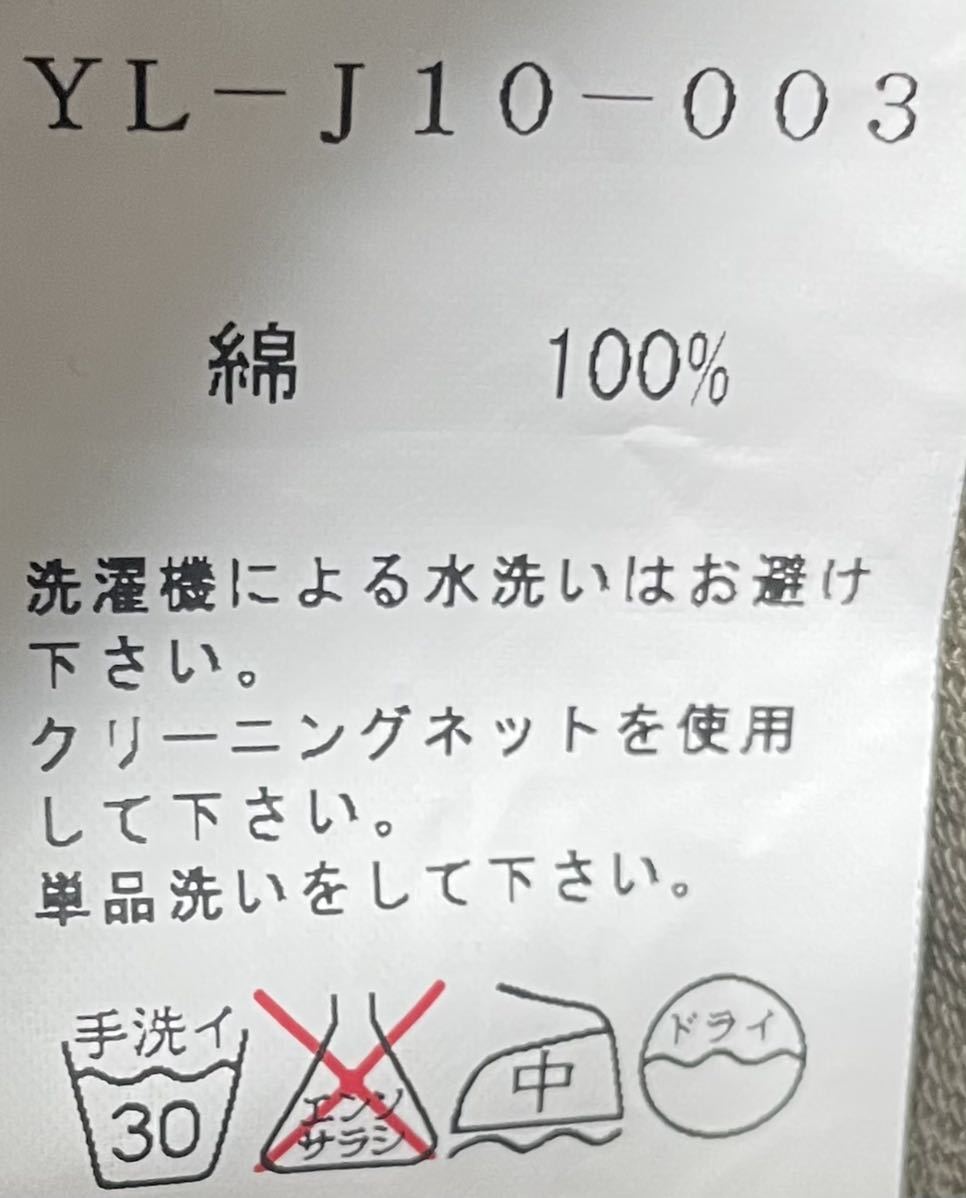 YL-J10-003
綿 100%
洗濯機による水洗いはお避け
下さい。
クリーニングネットを使用
して下さい。
単品洗いをして下さい。
手洗イ
30
エンソ
サラシ
中
ドライ